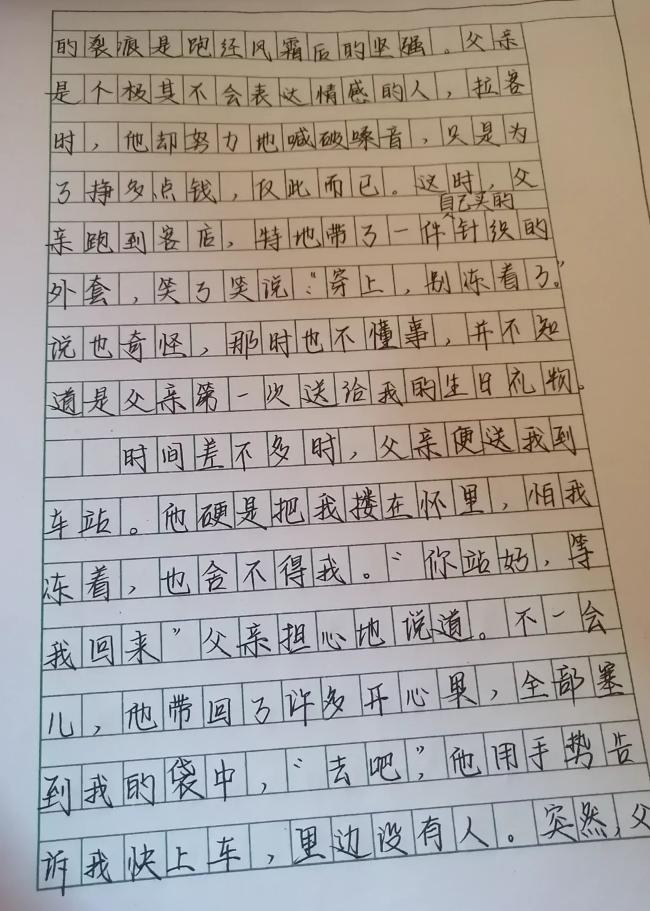 的裂痕是跑经风霜后的坚强。父亲
是个极其不会表达情感的人，拉客
时，他却努力地喊破嗓音，只是为
了挣多点钱，仅此而已。这时，父
自己买的
亲跑到客店，特地带了一件针织的
外套，笑了笑说：“穿上，别冻着了。”
说也奇怪，那时也不懂事，并不知
道是父亲第一次送给我的生日礼物。
时间差不多时，父亲便送我到
车站。他硬是把我搂在怀里，怕我
冻着，也舍不得我。“你站好，等
我回来”父亲担心地说道。不一会
儿，他带回了许多开心果，全部塞
到我的袋中，“去吧”，他用手势告
诉我快上车，里边没有人。突然，父